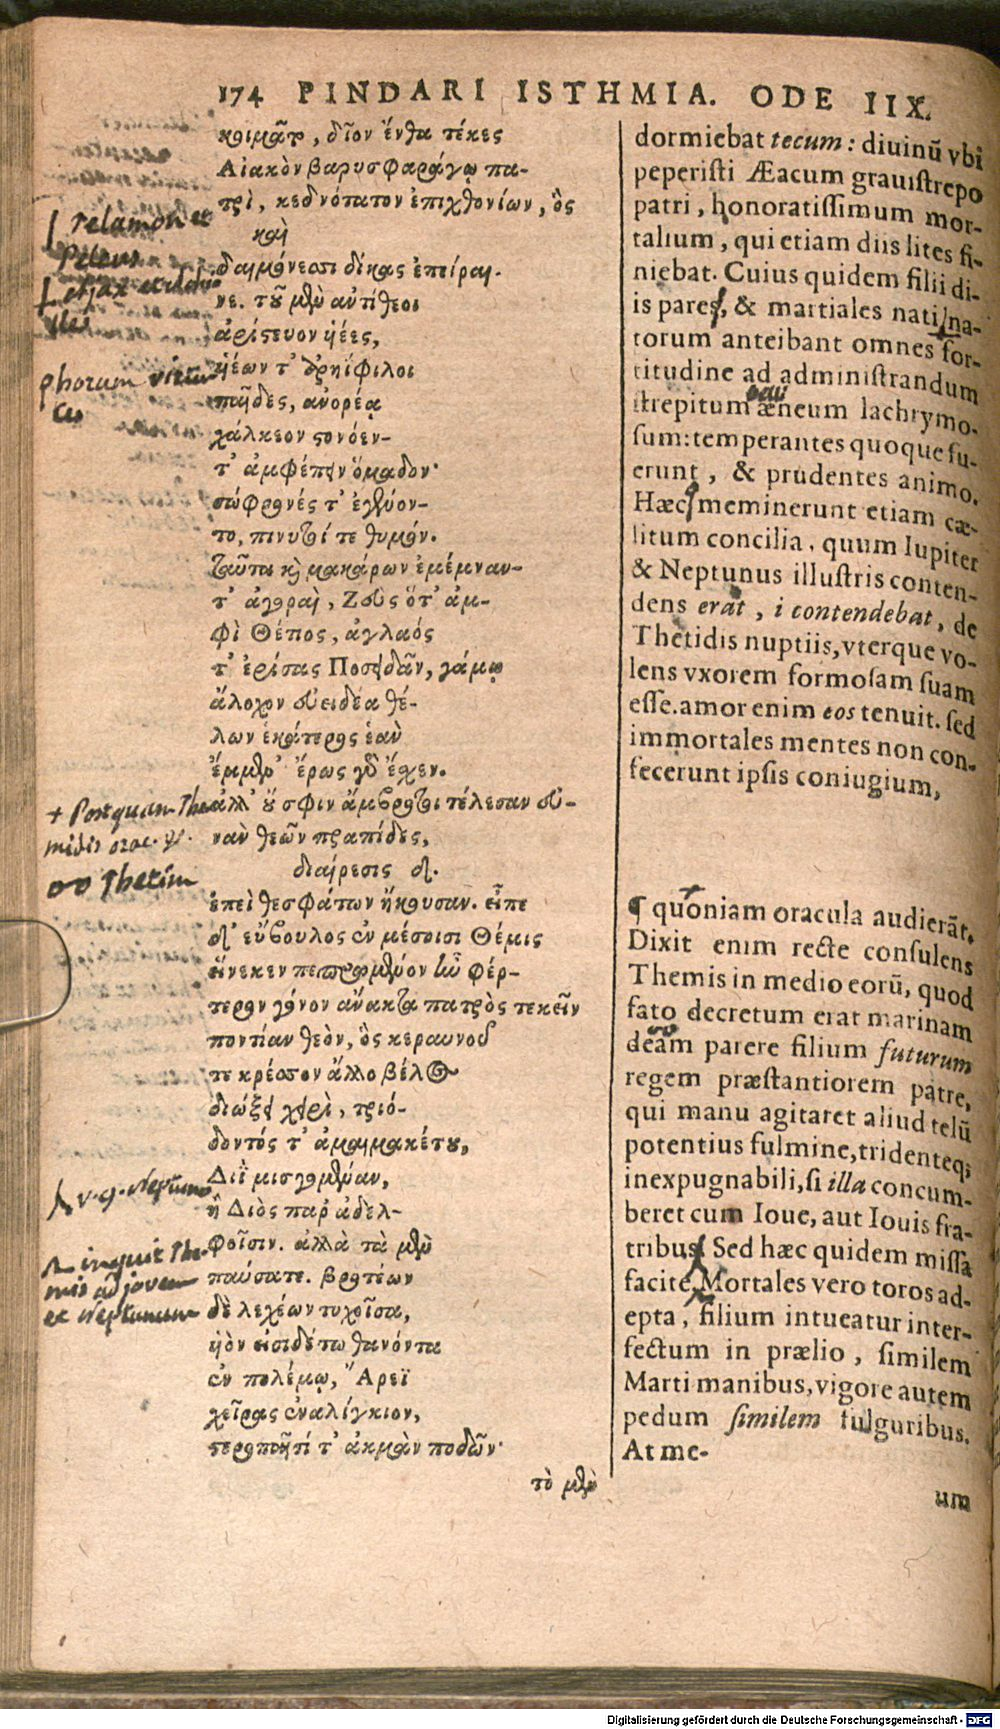 174 PINDARI ISTHMIA. ODE IIX.
κοιμᾶτ, δῖον ἔνθα τέκες
Αἰακὸν βαρυσφαράγῳ πα-
τρὶ, κεδνότατον ἐπιχθονίων, ὃς
καὶ
δαιμόνεσσι δίκας ἐπείραι-
νε. τοῦ μὲν ἀντίθεοι
ἀρίστευον υἱέες,
υἱέων τ' ἀρηΐφιλοι
παῖδες, ἀνορέᾳ
χάλκεον στονόεν-
τ' ἀμφέπειν ὅμαδον·
σώφρονές τ' ἐγένον-
το, πινυτοί τε θυμόν.
ταῦτα καὶ μακάρων ἐμέμναν-
τ' ἀγοραὶ, Ζεὺς ὅτ' ἀμ-
φὶ Θέτιος, ἀγλαός
τ' ἐρίσας Ποσειδᾶν, γάμῳ
ἄλοχον εὐειδέα θέ-
λων ἑκάτερος ἑὰν
ἔμμεν· ἔρως γὰρ ἔχεν.
ἀλλ' οὔ σφιν ἄμβροτοι τέλεσαν εὐ-
νὰν θεῶν πραπίδες,
διαίρεσις δ.
ἐπεὶ θεσφάτων ἤκουσαν. εἶπε
δ' εὔβουλος ἐν μέσοισι Θέμις
εἵνεκεν πεπρωμένον ἦν φέρ-
τερον γόνον ἄνακτα πατρὸς τεκεῖν
ποντίαν θεὸν, ὃς κεραυνοῦ
τε κρέσσον ἄλλο βέλος
διώξει χειρὶ, τριό-
δοντός τ' ἀμαιμακέτου,
Διΐ μισγομέναν,
ἢ Διὸς παρ' ἀδελ-
φοῖσιν. ἀλλὰ τὰ μὲν
παύσατε. βροτέων
δὲ λεχέων τυχοῖσα,
υἱὸν εἰσιδέτω θανόντα
ἐν πολέμῳ, Ἄρεϊ
χεῖρας ἐναλίγκιον,
στεροπῇσί τ' ἀκμὰν ποδῶν·
τὸ μὲν
dormiebat tecum: diuinũ vbi
peperisti Æacum grauistrepo
patri, honoratissimum mor-
talium, qui etiam diis lites fi-
niebat. Cuius quidem filii di-
is pares, & martiales nati, na-
torum anteibant omnes for-
titudine ad administrandum
strepitum æneum lachrymo-
sum: temperantes quoque fu-
erunt, & prudentes animo.
Hæc meminerunt etiam cæ-
litum concilia, quum Iupiter
& Neptunus illustris conten-
dens erat, i contendebat, de
Thetidis nuptiis, vterque vo-
lens vxorem formosam suam
esse. amor enim eos tenuit. sed
immortales mentes non con-
fecerunt ipsis coniugium,
¶ quoniam oracula audierãt.
Dixit enim recte consulens
Themis in medio eorũ, quod
fato decretum erat marinam
deam parere filium futurum
regem præstantiorem patre,
qui manu agitaret aliud telũ
potentius fulmine, tridenteq;
inexpugnabili, si illa concum-
beret cum Ioue, aut Iouis fra-
tribus. Sed hæc quidem missa
facite. Mortales vero toros ad-
epta, filium intueatur inter-
fectum in prælio, similem
Marti manibus, vigore autem
pedum similem fulguribus.
At me-
um
Telamon et
Peleus
Ajax et
phorum
+ Postquam The
midis orac.
Thetim
v. g. Neptuno
inquit The-
mis ad jovem
et Neptunum
Digitalisierung gefördert durch die Deutsche Forschungsgemeinschaft - DFG